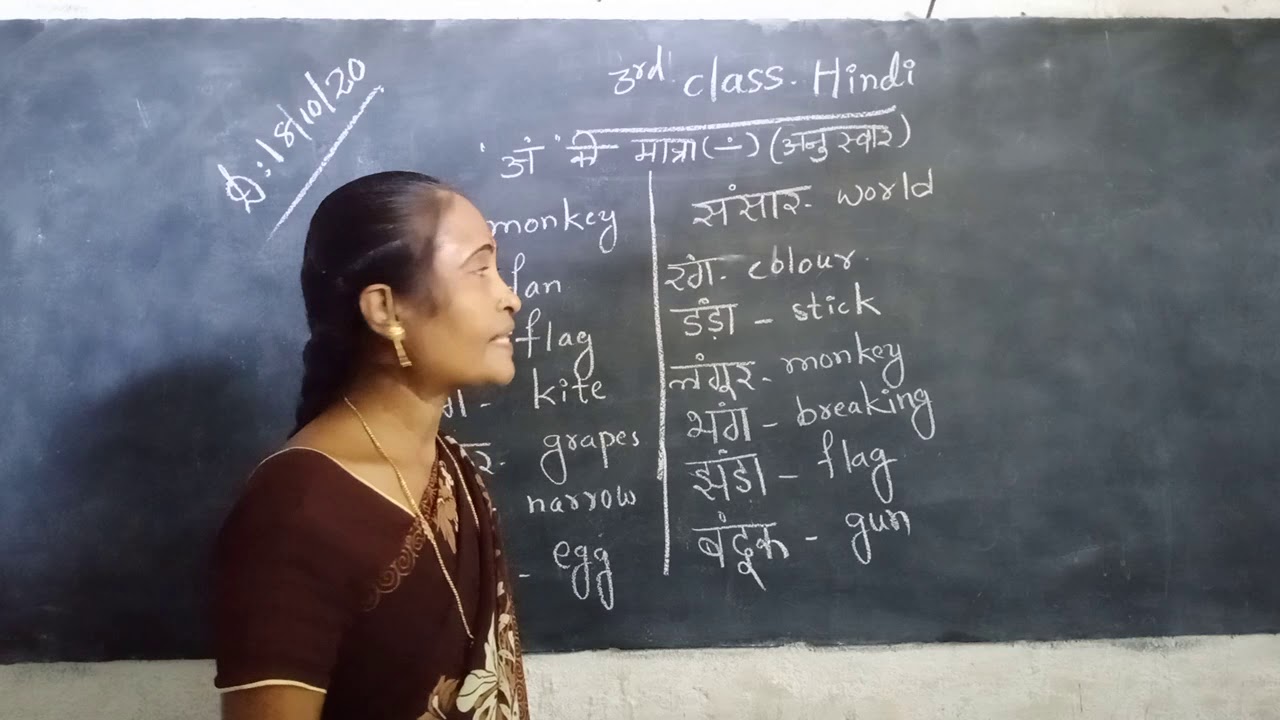 D: 18/10/20
3rd class. Hindi
'अं' की मात्रा (-ं) (अनुस्वार)
monkey
fan
flag
गा - kite
र - grapes
narrow
- egg
संसार - world
रंग - colour
डंड़ा - stick
लंगूर - monkey
भंग - breaking
झंडा - flag
बंदूक - gun